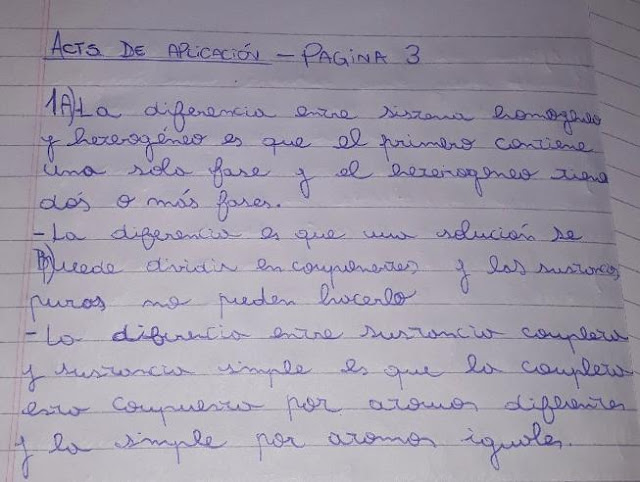 ACTS DE APLICACIÓN - PAGINA 3
1A) La diferencia entre sistema homogéneo
y heterogéneo es que el primero contiene
una sola fase y el heterogeneo tiene
dos o más fases.
- La diferencia es que una solución se
B) puede dividir en componentes y las sustancias
puras no pueden hacerlo
- La diferencia entre sustancia compleja
y sustancia simple es que la compleja
esta compuesta por atomos diferentes
y la simple por atomos iguales.